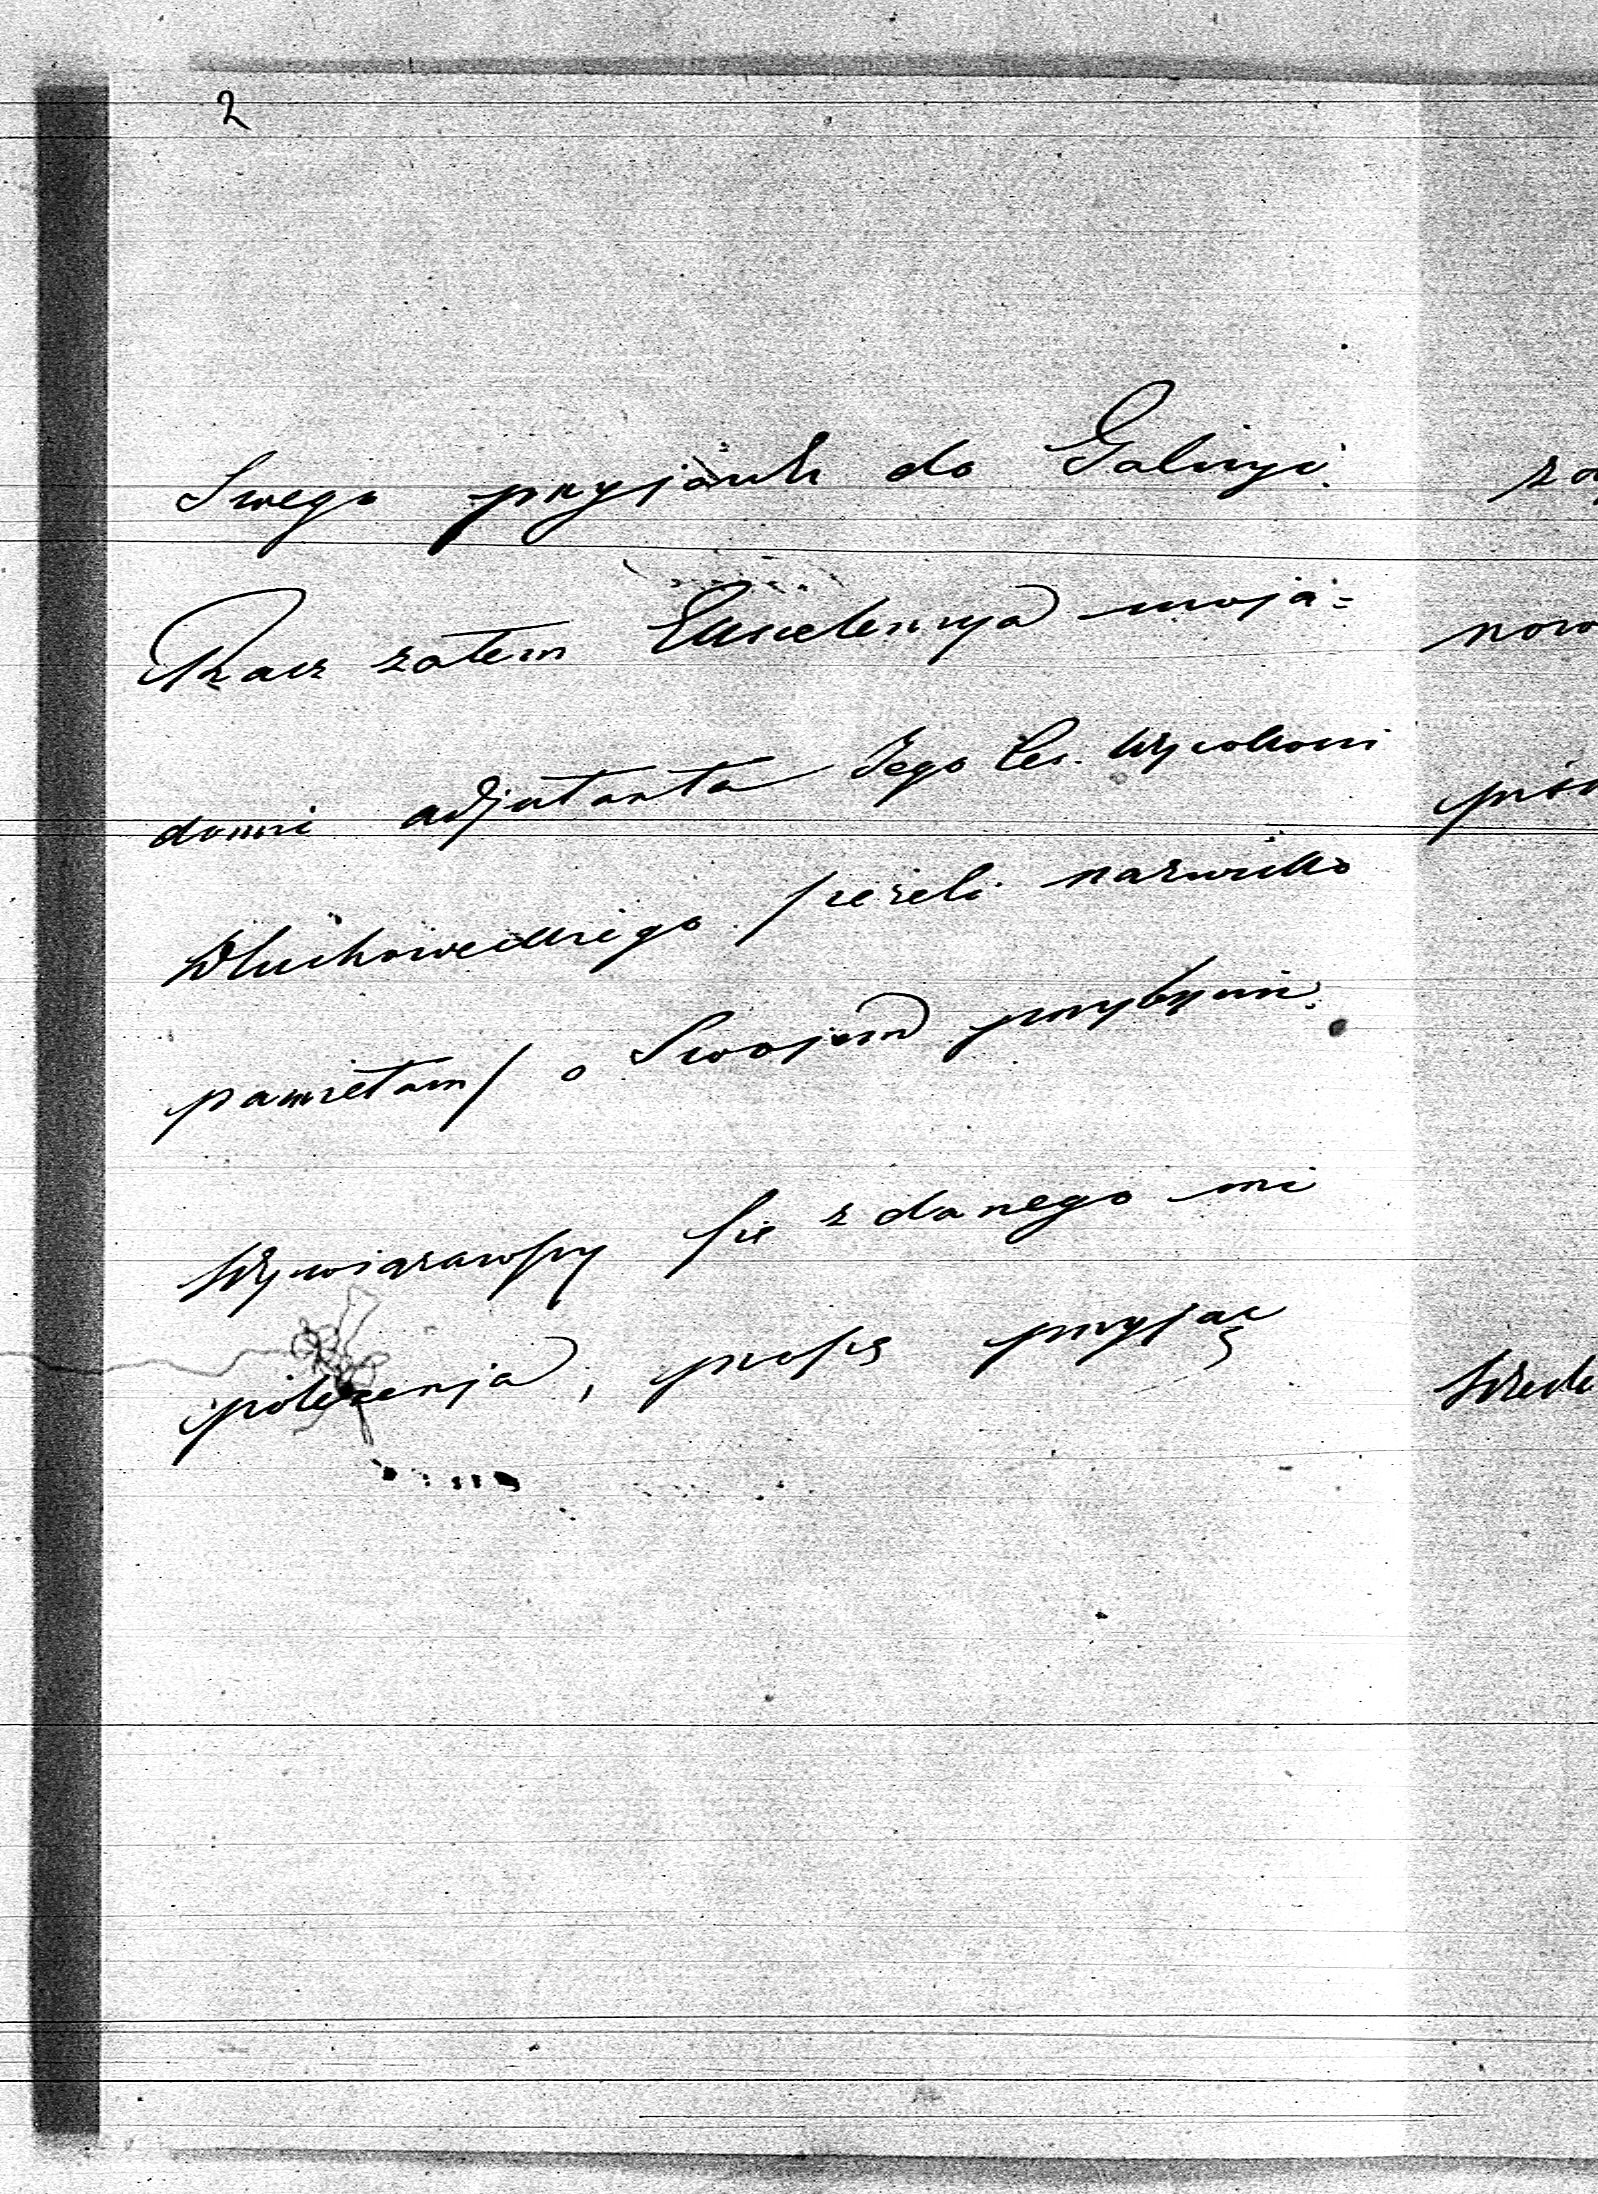 2
Swego przyjazdu do Galicyi.
Racz zatem Excelencyo uwia=
domić adjutanta Jego Ces. Wysokości
Wluchoweckiego /jeżeli nazwisko
pamiętam/ o Swojem przybyciu.
Wywiązawszy się z danego mi
polecenia, proszę przyjąć